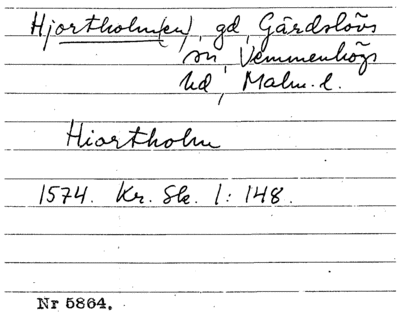 Hjortholm(en), gd, Gärdslövs
sn, Vemmenhögs
hd, Malm. l.
Hiortholm
1574. Kr. Sk. 1: 148.
Nr 5864.